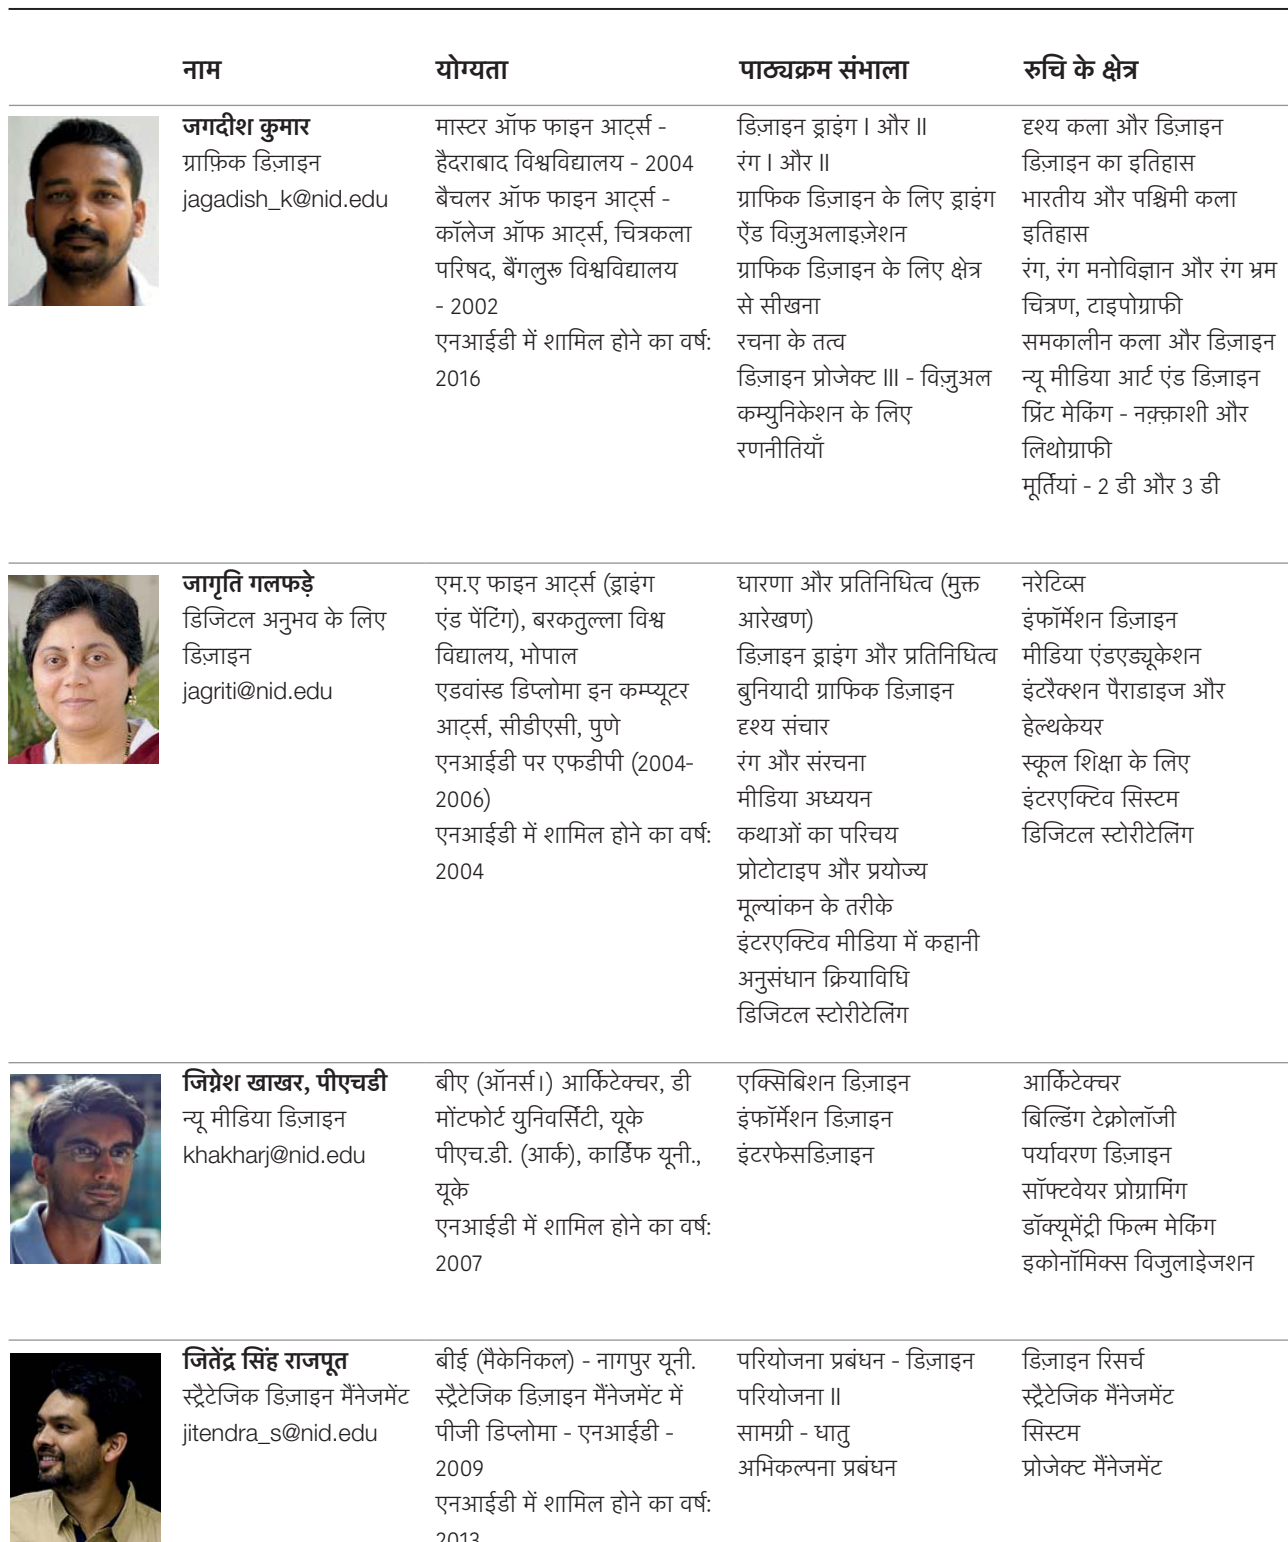 नाम योग्यता पाठ्यक्रम संभाला रुचि के क्षेत्र
जगदीश कुमार
ग्राफ़िक डिज़ाइन
jagadish_k@nid.edu
मास्टर ऑफ फाइन आर्ट्स -
हैदराबाद विश्वविद्यालय - 2004
बैचलर ऑफ फाइन आर्ट्स -
कॉलेज ऑफ आर्ट्स, चित्रकला
परिषद, बैंगलुरू विश्वविद्यालय
- 2002
एनआईडी में शामिल होने का वर्ष:
2016
डिज़ाइन ड्राइंग I और II
रंग I और II
ग्राफिक डिज़ाइन के लिए ड्राइंग
ऐंड विज़ुअलाइज़ेशन
ग्राफिक डिज़ाइन के लिए क्षेत्र
से सीखना
रचना के तत्व
डिज़ाइन प्रोजेक्ट III - विज़ुअल
कम्युनिकेशन के लिए
रणनीतियाँ
दृश्य कला और डिज़ाइन
डिज़ाइन का इतिहास
भारतीय और पश्चिमी कला
इतिहास
रंग, रंग मनोविज्ञान और रंग भ्रम
चित्रण, टाइपोग्राफी
समकालीन कला और डिज़ाइन
न्यू मीडिया आर्ट एंड डिज़ाइन
प्रिंट मेकिंग - नक़्क़ाशी और
लिथोग्राफी
मूर्तियां - 2 डी और 3 डी
जागृति गलफड़े
डिजिटल अनुभव के लिए
डिज़ाइन
jagriti@nid.edu
एम.ए फाइन आर्ट्स (ड्राइंग
एंड पेंटिंग), बरकतुल्ला विश्व
विद्यालय, भोपाल
एडवांस्ड डिप्लोमा इन कम्प्यूटर
आर्ट्स, सीडीएसी, पुणे
एनआईडी पर एफडीपी (2004-
2006)
एनआईडी में शामिल होने का वर्ष:
2004
धारणा और प्रतिनिधित्व (मुक्त
आरेखण)
डिज़ाइन ड्राइंग और प्रतिनिधित्व
बुनियादी ग्राफिक डिज़ाइन
दृश्य संचार
रंग और संरचना
मीडिया अध्ययन
कथाओं का परिचय
प्रोटोटाइप और प्रयोज्य
मूल्यांकन के तरीके
इंटरएक्टिव मीडिया में कहानी
अनुसंधान क्रियाविधि
डिजिटल स्टोरीटेलिंग
नरेटिव्स
इंफॉर्मेशन डिज़ाइन
मीडिया एंडएड्यूकेशन
इंटरैक्शन पैराडाइज और
हेल्थकेयर
स्कूल शिक्षा के लिए
इंटरएक्टिव सिस्टम
डिजिटल स्टोरीटेलिंग
जिग्नेश खाखर, पीएचडी
न्यू मीडिया डिज़ाइन
khakharj@nid.edu
बीए (ऑनर्स।) आर्किटेक्चर, डी
मोंटफोर्ट युनिवर्सिटी, यूके
पीएच.डी. (आर्क), कार्डिफ यूनी.,
यूके
एनआईडी में शामिल होने का वर्ष:
2007
एक्सिबिशन डिज़ाइन
इंफॉर्मेशन डिज़ाइन
इंटरफेसडिज़ाइन
आर्किटेक्चर
बिल्डिंग टेक्नोलॉजी
पर्यावरण डिज़ाइन
सॉफ्टवेयर प्रोग्रामिंग
डॉक्यूमेंट्री फिल्म मेकिंग
इकोनॉमिक्स विजुलाईजशन
जितेंद्र सिंह राजपूत
स्ट्रैटेजिक डिज़ाइन मैंनेजमेंट
jitendra_s@nid.edu
बीई (मैकेनिकल) - नागपुर यूनी.
स्ट्रैटेजिक डिज़ाइन मैंनेजमेंट में
पीजी डिप्लोमा - एनआईडी -
2009
एनआईडी में शामिल होने का वर्ष:
2013
परियोजना प्रबंधन - डिज़ाइन
परियोजना II
सामग्री - धातु
अभिकल्पना प्रबंधन
डिज़ाइन रिसर्च
स्ट्रैटेजिक मैंनेजमेंट
सिस्टम
प्रोजेक्ट मैंनेजमेंट